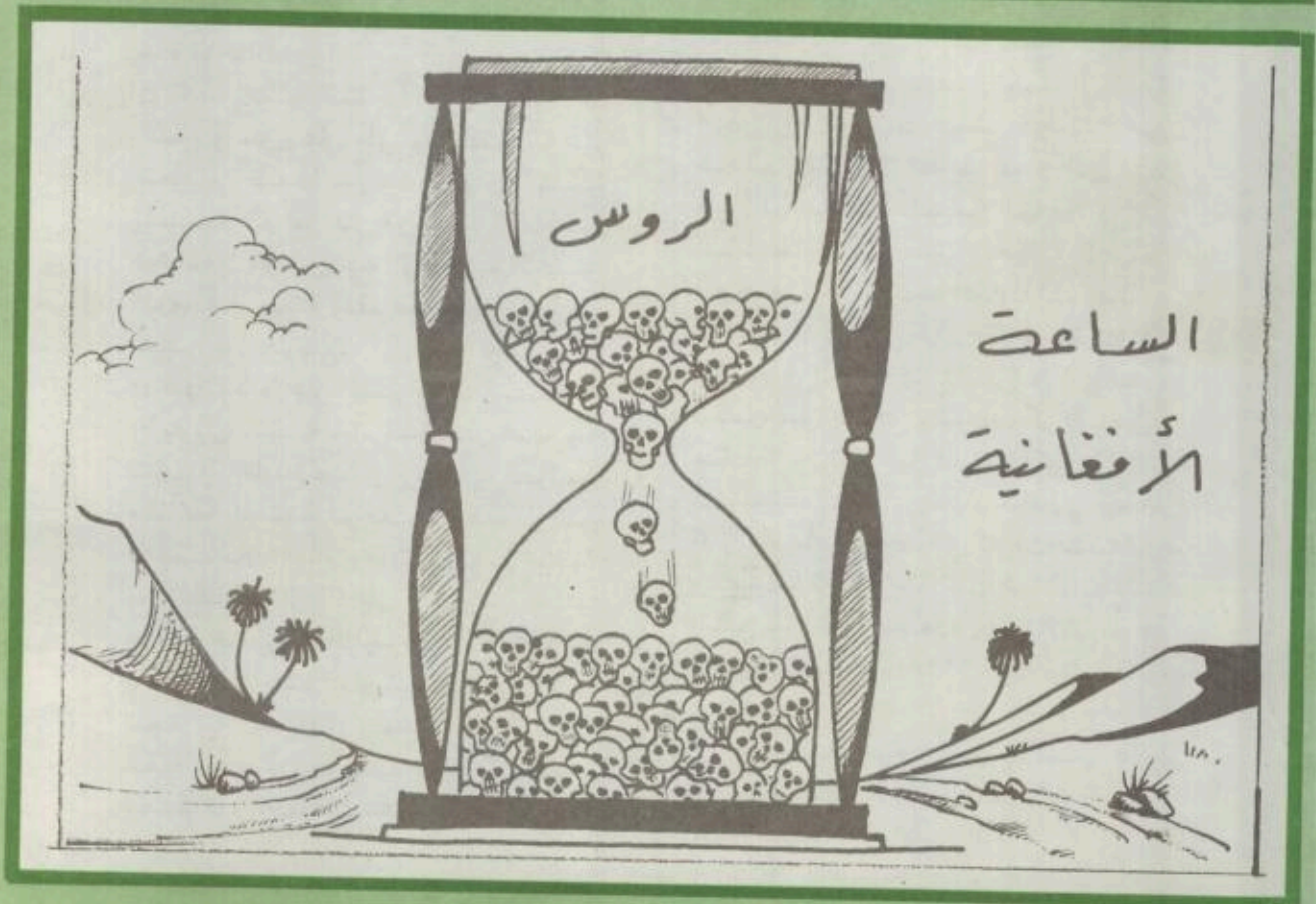 الروس
الساعة
الأفغانية